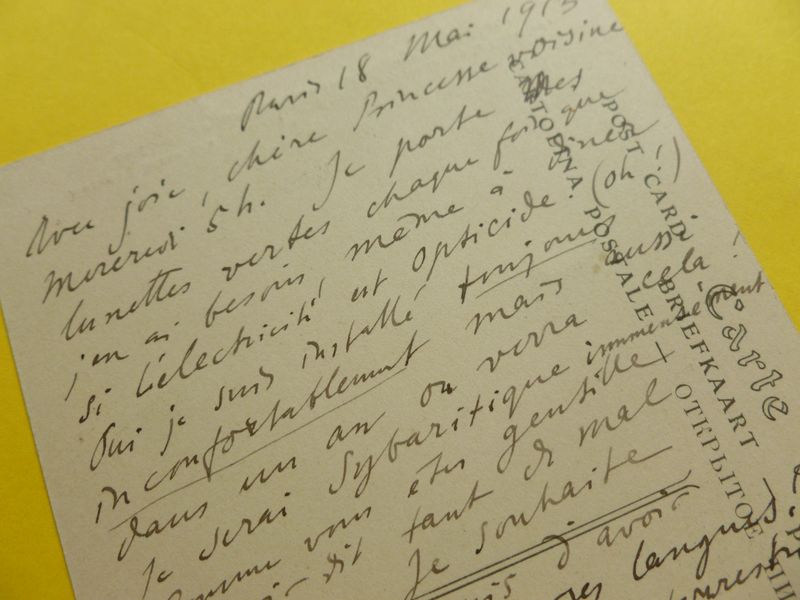 Paris 18 Mai 1913
Avec joie, chère Princesse voisine
Mercredi 5h. Je porte mes
lunettes vertes chaque fois que
j'en ai besoin, même à dîner
si l'électricité est opticide. (oh!)
Oui je suis installé toujours aussi
inconfortablement mais
dans un an on verra cela!
Je serai sybaritique immensément
Comme vous êtes gentille
dit tant de mal
Je souhaite
d'avoir
langues.
Carte
POST CARD BRIEFKAART
CARTOLINA POSTALE ОТКРЫТОЕ